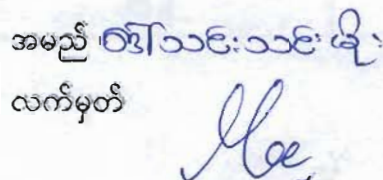 အမည် ဒေါ်သင်းသင်းမိုး
လက်မှတ် Moe